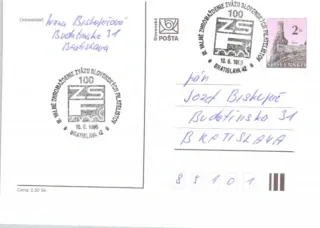 Odosielateľ:
Irena Biskupičová
Budatínska 31
Bratislava
Slovenská
POŠTA
III. VALNÉ ZHROMAŽDENIE ZVÄZU SLOVENSKÝCH FILATELISTOV
100
ZSF
10. 6. 1995
BRATISLAVA 42
III. VALNÉ ZHROMAŽDENIE ZVÄZU SLOVENSKÝCH FILATELISTOV
100
ZSF
10. 6.
BRATISLAVA 42
2
SLOVENSKO
pán
Jozef Biskupič
Budatínska 31
BRATISLAVA
85101
Cena: 2.50 Sk